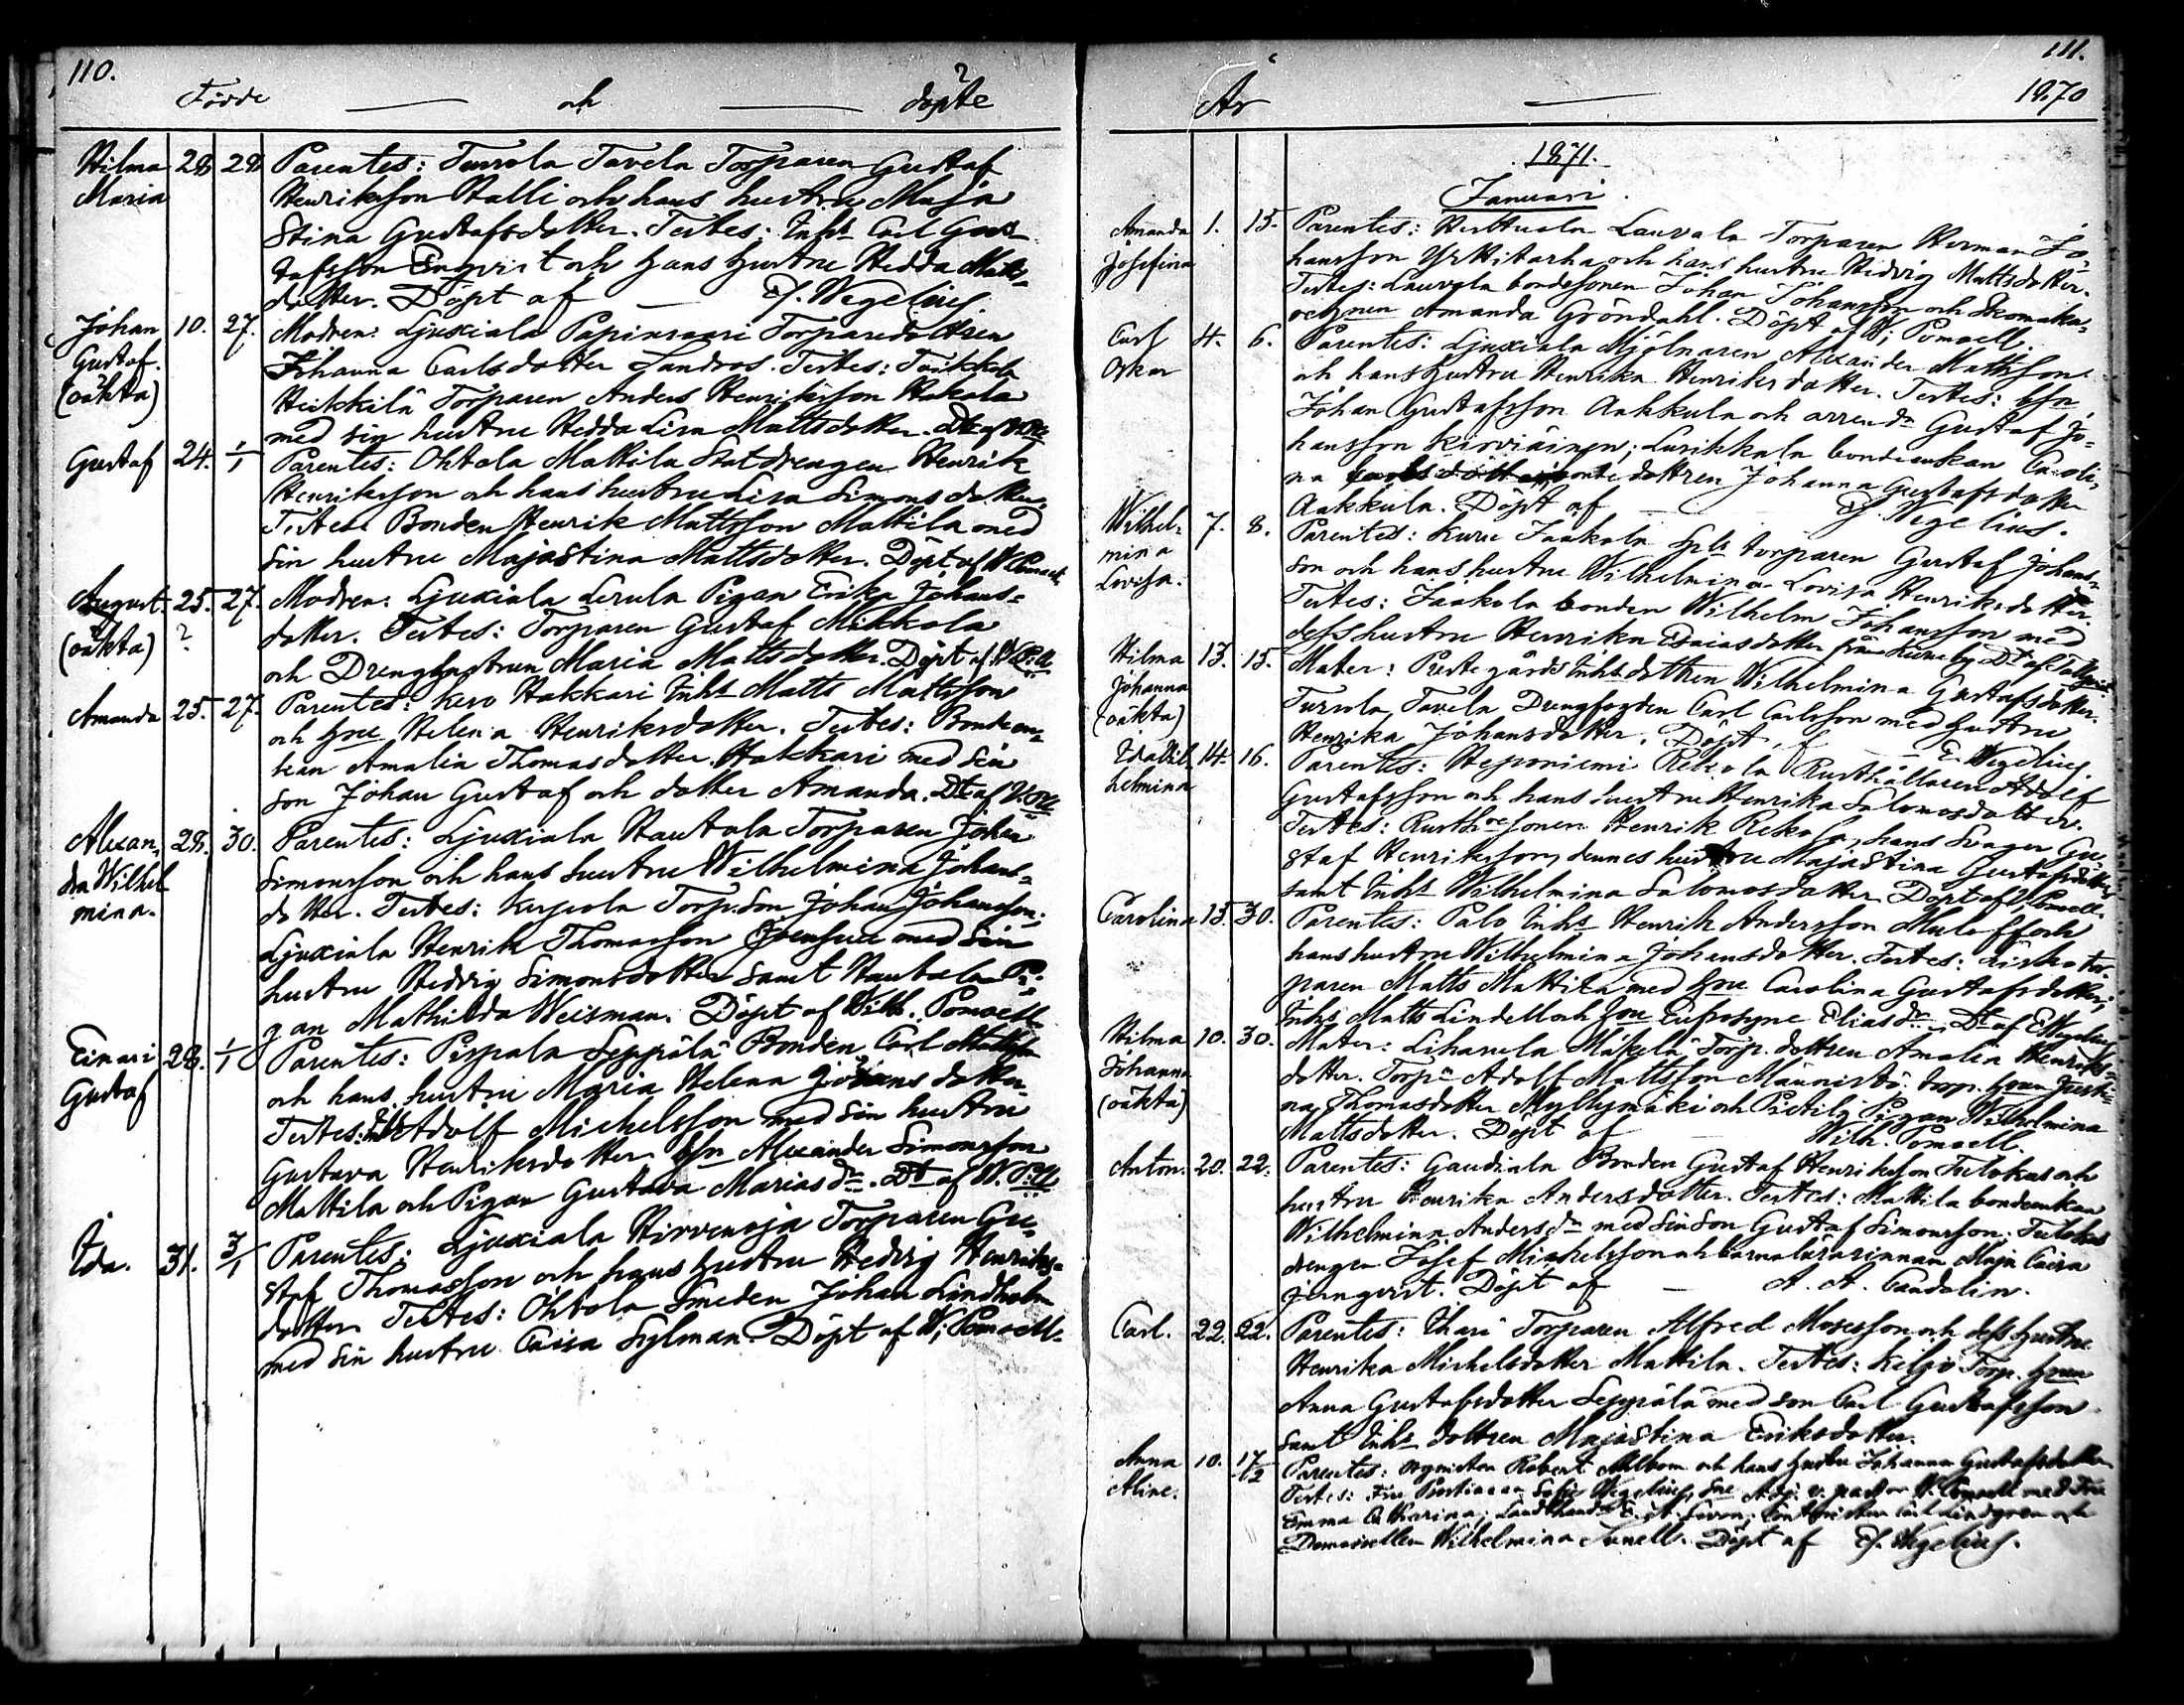 110.
Födde — och — döpte
Hilma 28 28 Parentes: Turrola Tavela Torparen Gustaf
Maria Henriksson Halli och hans hustru Maja
Stina Gustafsdotter. Testes: Inhs Carl Gus-
tafsson Enqvist och hans hustru Hedda Matts-
dotter. Döpt af — E. Wegelius.
Johan 10. 27. Modren: Ljuxiala Papinsaari Torparedottren
Gustaf. Johanna Carlsdotter Landros. Testes:
(oäkta) Heikkilä Torparen Anders Henriksson Hakala
med sin hustru Hedda Lisa Mattsdotter. Dt af
Gustaf 24. 1/1 Parentes: Ohtola Mattila Statdrengen Henrik
Henriksson och hans hustru Lisa Simonsdotter.
Testes: Bonden Henrik Mattsson Mattila med
sin hustru Majastina Mattsdotter. Döpt af W. Pomoell.
August. 25. 27. Modren: Ljuxiala Lerula Pigan Erika Johans-
(oäkta) ? dotter. Testes: Torparen Gustaf Mikkola
och Drenghustrun Maria Mattsdotter. Döpt af W. P:ll.
Amanda 25. 27. Parentes: Kero Hakkari Inhs Matts Mattsson
och hru Helena Henriksdotter. Testes: Bondeen-
kan Amalia Thomasdotter Hakkari med sin
son Johan Gustaf och dotter Amanda. Dt af W. P:ll.
Alexan- 28. 30. Parentes: Ljuxiala Hautala Torparen Johan
dra Wilhel Simonsson och hans hustru Wilhelmina Johans-
mina. dotter. Testes: Torp.son Johan Johansson;
Ljuxiala Henrik Thomasson med sin
hustru Hedvig Simonsdotter samt Hautala Pi-
gan Mathilda Weisman. Döpt af Wilh. Pomoell.
Einari 28. 1/1 Parentes: Pispala Seppälä Bonden Carl Mattsson
Gustaf och hans hustru Maria Helena Johansdotter
Testes: Adolf Michelsson med sin hustru
Gustava Henriksdotter bsn Alexander Simonsson
Mattila och Pigan Gustava Mariasdr. Dt af W. P:ll.
Ida. 31. 3/1 Parentes: Ljuxiala Hirvenoja Torparen Gu-
staf Thomasson och hans hustru Hedvig Henriks-
dotter. Testes: Ohtola Smeden Johan Lindholm
med sin hustru Caisa Sylman. Döpt af W. Pomoell.
111.
År — 1870
1871.
Januari.
Amanda 1. 15. Parentes: Herttuala Laurala Torparen Herman Jo-
Josefina hansson Yrttitarha och hans hustru Hedvig Mattsdotter.
Testes: Laurola bondesonen Johan Johansson och Skomaka-
Amanda Gröndahl. Döpt af W. Pomoell.
Carl 4. 6. Parentes: Ljuxiala Mjölnaren Alexander Mattsson
Oskar och hans hustru Henrika Henriksdotter. Testes: bsn
Johan Gustafsson Aakkula och arrendn Gustaf Jo-
hansson Kirviäinen; Lurikkala bondeenkan Caroli-
na bondedottren Johanna Gustafsdotter
Aakkula. Döpt af — E. Wegelius.
Wilhel- 7. 8. Parentes: Kuru Jaakola torparen Gustaf Johans-
mina son och hans hustru Wilhelmina Lovisa Henriksdotter.
Lovisa. Testes: Jaakola bonden Wilhelm Johansson med
dess hustru Henrika Esaiasdotter från Kuru by Dt af
Hilma 13. 15. Mater: Prestegårds Inhs dottren Wilhelmina Gustafsdotter.
Johanna Turrola Tavela Drengfogden Carl Carlsson med hustru
(oäkta) Henrika Johansdotter. Döpt af — E. Wegelius.
Ida Wil- 14. 16. Parentes: Heponiemi Rekola Rusthållaren Adolf
helmina Gustafsson och hans hustru Henrika Salomosdotter.
Testes: Rusthsonen Henrik Rekola, hans svager Gu-
staf Henriksson, dennes hustru Majastina Gustafsdotter
samt Inhs Wilhelmina Salomosdotter. Döpt af W. Pomoell.
Carolina 13. 30. Parentes: Palo Inhs Henrik Andersson Muloff och
hans hustru Wilhelmina Johansdotter. Testes: tor-
paren Matts Mattila med hru Carolina Gustafsdotter;
Inhs Matts Lindell och hru Eufrosyne Eliasdr. Dt af E. Wegelius.
Hilma 10. 30. Mater: Lihasula Mäkelä Torp. dottren Amalia Henriks-
Johanna dotter. Torpn Adolf Mattsson Männistö. torp. hrun Justi-
(oäkta) na Thomasdotter Myllymäki och Pietilä Pigan Wilhelmina
Mattsdotter. Döpt af — Wilh. Pomoell.
Anton. 20. 22. Parentes: Gaudiala Bonden Gustaf Henriksson Tulokas och
hustru Henrika Andersdotter. Testes: Mattila bondeenkan
Wilhelmina Andersdr med sin son Gustaf Simonsson; Tulokas
drengen Josef Michelsson och barnalärarinnan Maja Caisa
Jernqvist. Döpt af — A. A. Candolin.
Carl. 22. 22. Parentes: Ihari Torparen Alfred Mosesson och dess hustru
Henrika Michelsdotter Mattila. Testes: Keljo Torp. hrun
Anna Gustafsdotter Seppälä med son Carl Gustafsson
samt Inhs dottren Majastina Eriksdotter.
Anna 10. 17/2 Parentes: organisten Robert Ahlbom och hans hustru Johanna Gustafsdotter
Aline. Testes: Fru Prostinnan Sofie Wegelius, Adj. v. pastor W. Pomoell med Fru
Emma Catharina; Landthandl. Carl Lindgren och
Demoisellen Wilhelmina Sunell. Döpt af E. Wegelius.